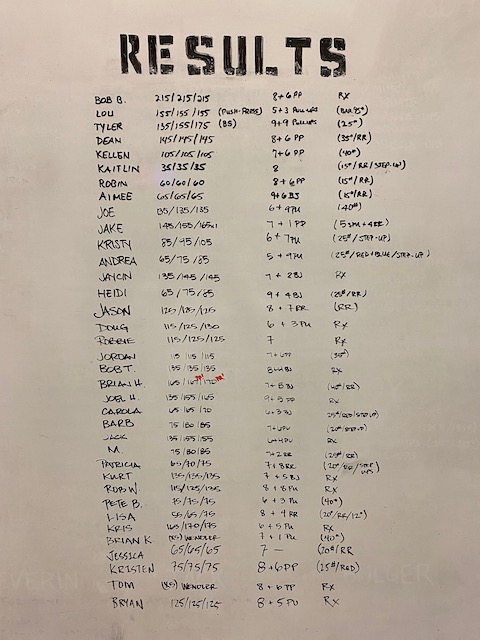 RESULTS
BOB B. 215/215/215 8+6 PP RX
LOU 155/155/155 (PUSH-PRESS) 5+3 PULLUPS
TYLER 135/155/175 (BS) 9+9 PULLUPS (25#)
DEAN 145/145/145 8+6 PP (35#/RR)
KELLEN 105/105/105 7+6 PP (40#)
KAITLIN 35/35/35 8 (15#/RR/STEP-UP)
ROBIN 60/60/60 8+6 PP (15#/RR)
AIMEE 65/65/65 9+6 BJ (15#/RR)
JOE 135/135/135 6+9PU (40#)
JAKE 145/155/165x1 7+1 PP
KRISTY 85/95/105 6+7PU (25#/STEP-UP)
ANDREA 65/75/85 5+9PU (25#/RED+BLUE/STEP-UP)
JAYCIN 135/145/145 7+2BJ RX
HEIDI 65/75/85 9+4BJ (25#/RR)
JASON 125/125/125 8+7RR (RR)
DOUG 115/125/130 6+3PU RX
115/125/125 7 RX
JORDAN 115/115/115 7+6PP (35#)
BOB T. 135/135/135 RX
BRIAN H. 165/ PR! PR! 7+5BJ (40#/RR)
JOEL H. 135/155/165 RX
CAROLA 65/65/70 6+3BJ
BARB 75/80/85 7+6PU
JACK 135/155/155 6+4PU RX
M. 75/80/85 7+2RR (25#/RR)
PATRICIA 65/70/75 7+8RR (20#/RR/STEP UPS
KURT 135/135/135 7+5BJ RX
ROB W. 115/125/135 8+8PU RX
PETE B. 75/75/75 6+3PU (40#)
LISA 55/65/75 8+4RR (20#/RR/12")
KRIS 165/170/175 6+5PU RX
BRIAN K WENDLER 7+1PU (40#)
JESSICA 65/65/65 7 — (20#/RR
KRISTEN 75/75/75 8+6PP (25#/RED)
TOM WENDLER RX
BRYAN 125/125/125 8+5PU RX